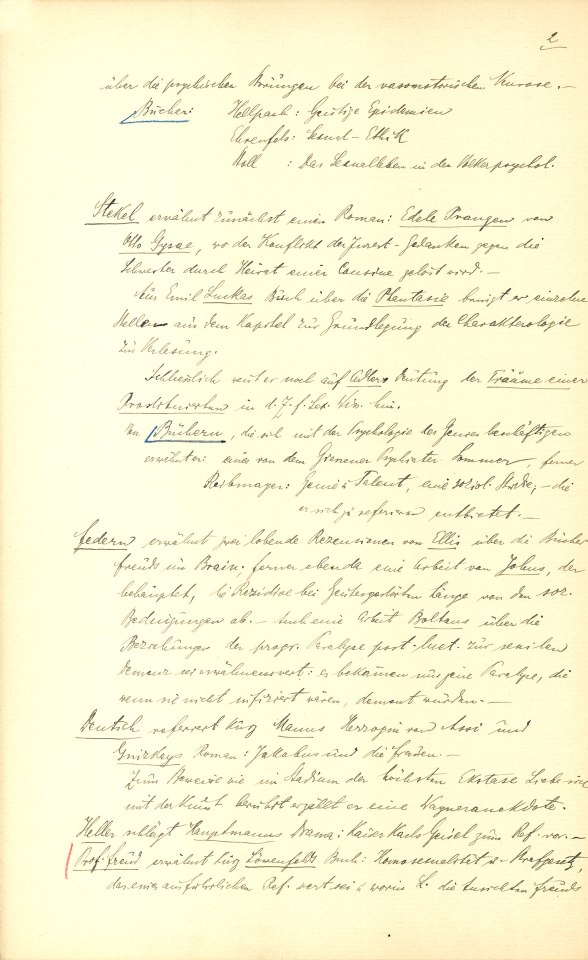 2
über die psychischen Störungen bei der vasomotorischen Neurose.—
Bücher: Hellpach: Geistige Epidemien
Ehrenfels: Sexual-Ethik
Moll : Das Sexualleben in der Völkerpsychol.
Stekel erwähnt zunächst einen Roman: Edele Prangen von
Otto Gysae, wo der Konflikt der Inzest-Gedanken gegen die
Schwester durch Heirat einer Cousine gelöst wird.—
Aus Emil Luckas Buch über die Phantasie bringt er einzelne
Stellen aus dem Kapitel zur Grundlegung der Charakterologie
zur Verlesung.
Schliesslich weist er noch auf Adlers Deutung der Träume einer
Prostituierten in d. Z. f. Sex. Wis. hin.
Von Büchern, die sich mit der Psychologie des Genies beschäftigen
erwähnt er: eines von dem Giessener Psychiater Sommer, ferner
Reibmayer: Genie u Talent, eine soziol. Studie,— die
er sich zu referieren erbietet.—
Federn erwähnt zwei lobende Rezensionen von Ellis über die Bücher
Freuds im Brain. ferner ebenda eine Arbeit von, der
behauptet, die Rezidive bei Geistesgestörten hänge von den soz.
Bedingungen ab.— Auch eine Arbeit Boltons über die
Beziehungen der progr. Paralyse post-luet. zur senilen
Demenz sei erwähnenswert: es bekämen nur jene Paralyse, die
wenn sie nicht infiziert wären, dement würden.—
Deutsch referiert kurz Manns Herzogin von Assi und
Roman: Jakobus und die Frauen.—
Zum Beweise wie im Stadium der höchsten Ekstase Liebe sich
mit der Kunst berührt erzählt er eine Wagneranekdote.
Heller schlägt Hauptmanns Drama: Kaiser Karls Geisel zum Ref. vor.—
Prof. Freud erwähnt kurz Löwenfelds Buch: Homosexualität u. Strafgesetz,
das eines ausführlichen Ref. wert sei u worin L. die Ansichten Freuds